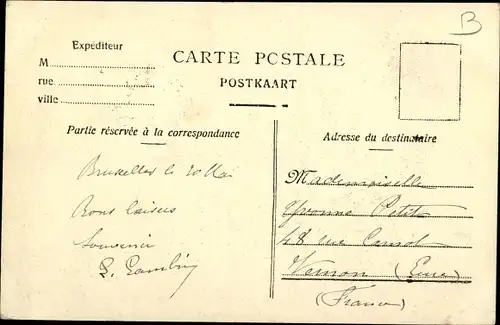 B
Expéditeur
M
rue
ville
CARTE POSTALE
POSTKAART
Partie réservée à la correspondance
Bruxelles le 20 Mai
Bons baisers
Souvenir
Adresse du destinataire
Mademoiselle
Yvonne Petit
48 rue Carnot
Vernon (Eure)
(France)